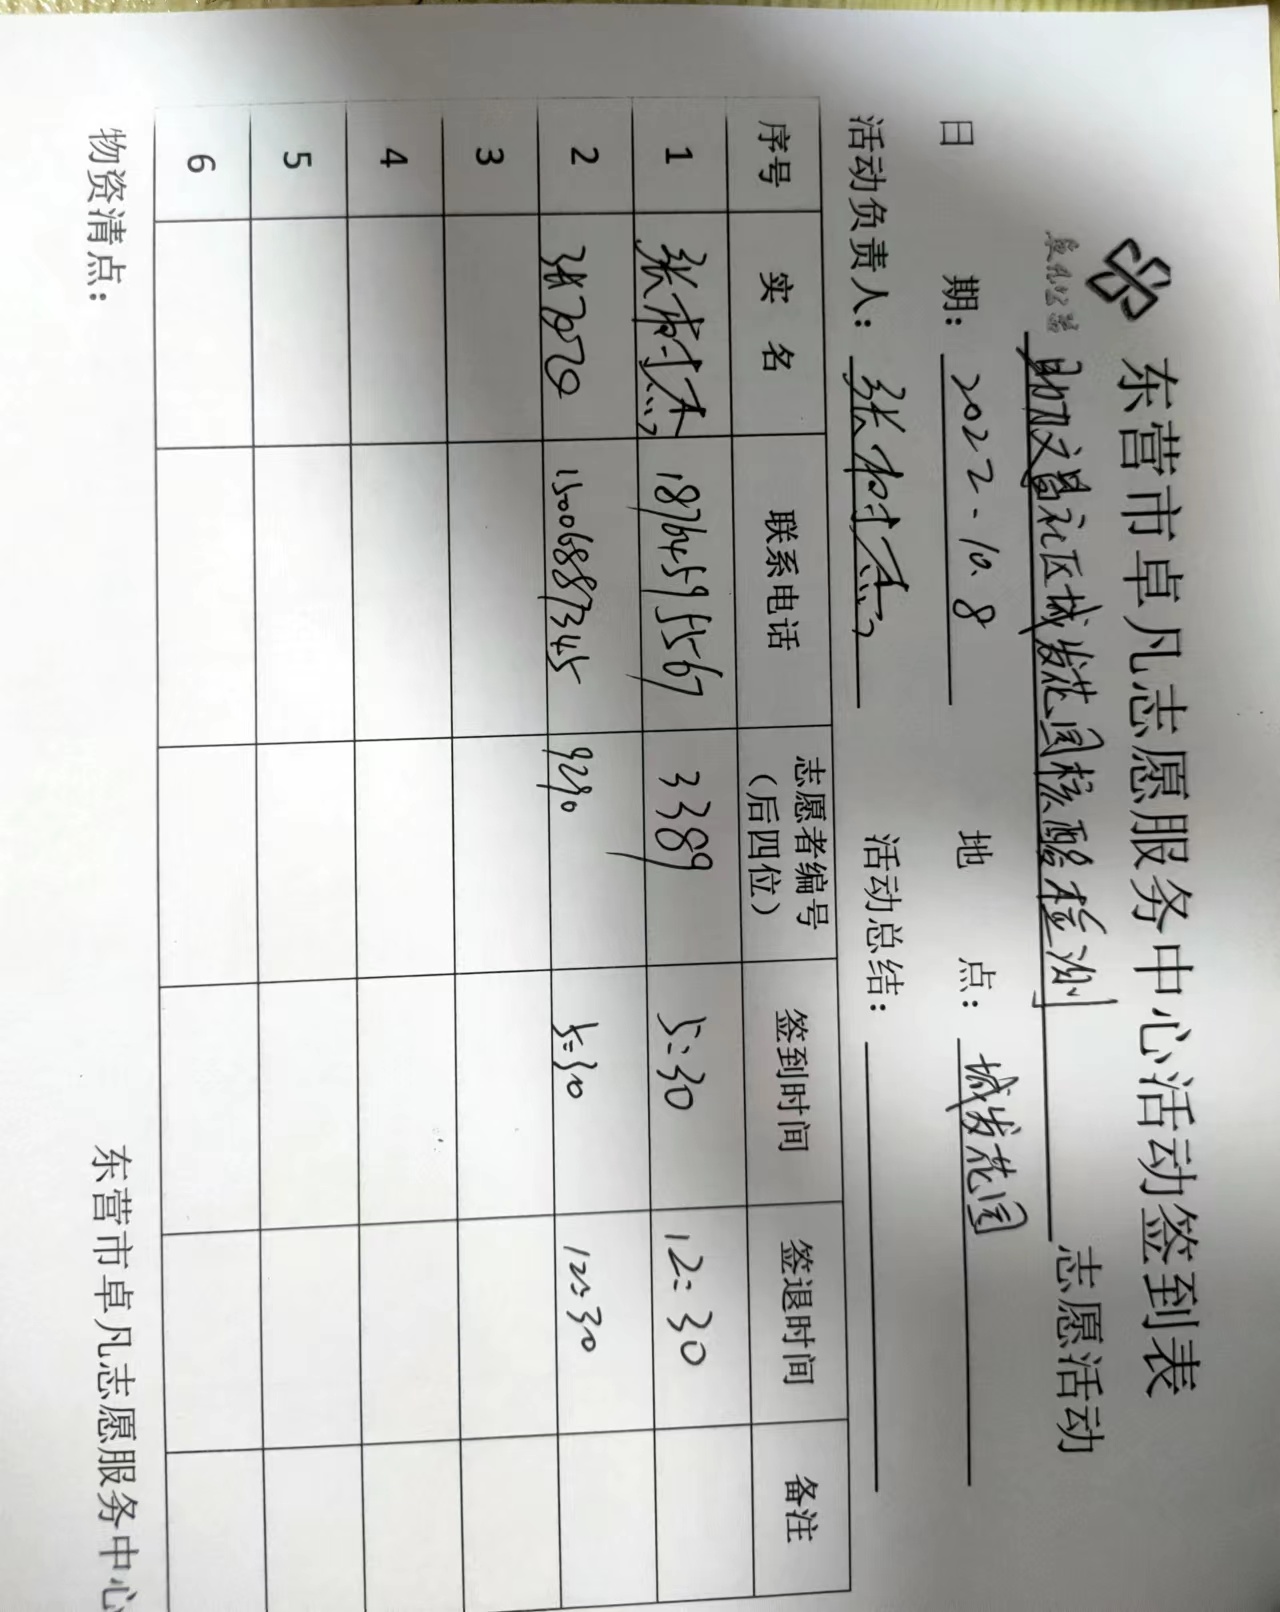 东营市卓凡志愿服务中心活动签到表
卓凡公益
助力文昌社区城发花园核酸检测 志愿活动
日 期：2022-10.8 地 点：城发花园
活动负责人：张树杰 活动总结：
序号 实 名 联系电话 志愿者编号（后四位） 签到时间 签退时间 备注
1 张树杰 18764595567 3389 5:30 12:30
2 15006887345 9290 5:30 12:30
3
4
5
6
物资清点：
东营市卓凡志愿服务中心